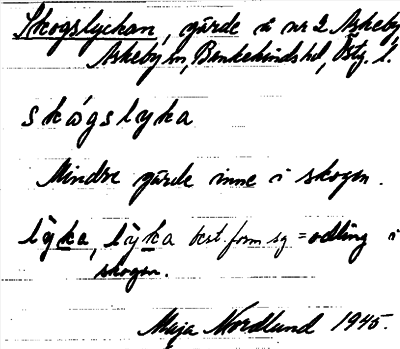 Skogslyckan, gärde i nr 2 Askeby
Askeby sn, Bankekinds hd, Östg. l.
skógslyka
Mindre gärde inne i skogen.
lỳka, lỳka best. form sg = odling i
skogen.
Maja Nordlund 1945.